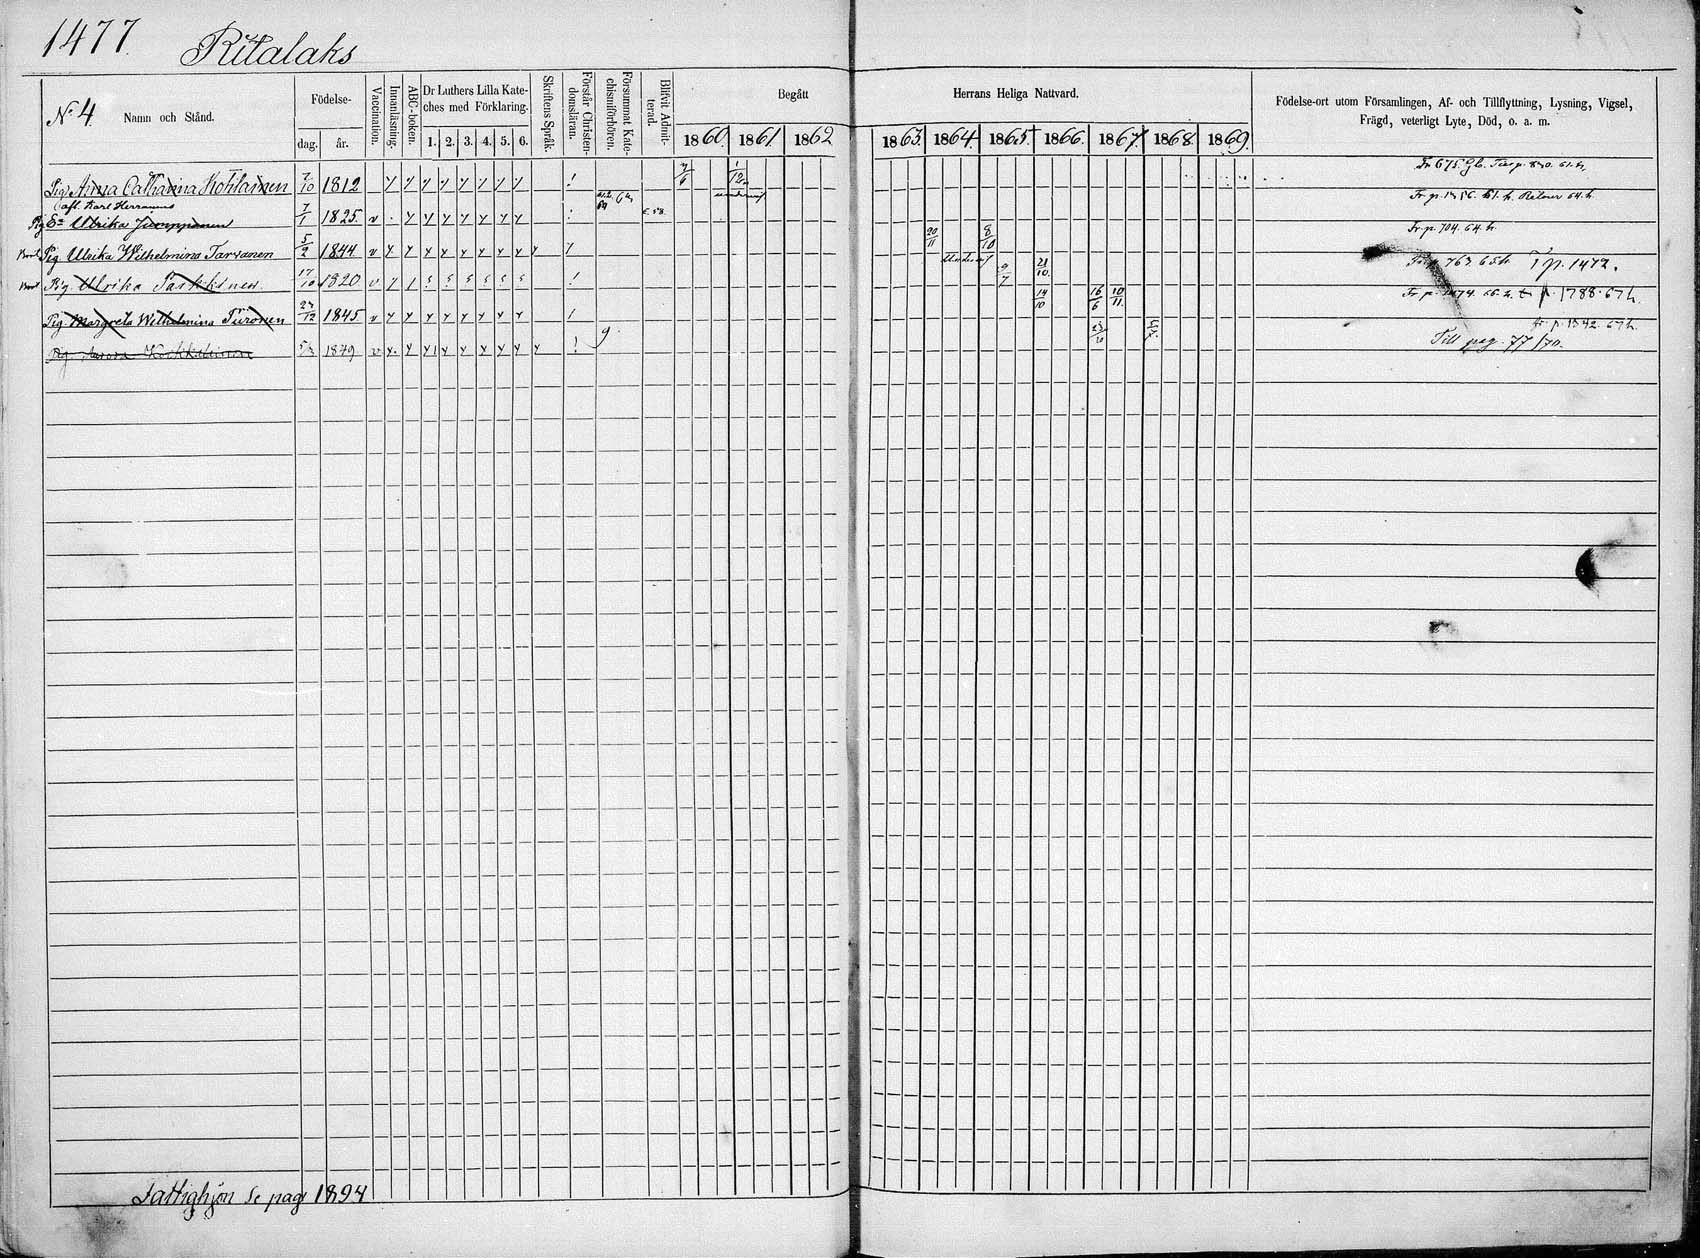 1477. Ritalaks
No 4. Namn och Stånd.
Födelse-
dag. år.
Vaccination.
Innanläsning.
ABC-boken.
Dr Luthers Lilla Kate-
ches med Förklaring.
1. 2. 3. 4. 5. 6.
Skriftens Språk.
Förstår Christen-
domsläran.
Försummat Kate-
chismiförhören.
Blifvit Admit-
terad.
Begått
Herrans Heliga Nattvard.
1860. 1861. 1862 1863. 1864. 1865. 1866. 1867. 1868. 1869.
Födelse-ort utom Församlingen, Af- och Tillflyttning, Lysning, Vigsel,
Frägd, veterligt Lyte, Död, o. a. m.
Pig. Anna Catharina Kohlainen 7/10 1812 7/6 1/12
afl. Karl Hermanns
Pig Ulrika 7/1 1825. v
Pig Ulrika Wilhelmina Tarvanen 5/2 1844 v 20/11 8/10 Fr. p. 704. 64. h.
Pig. Ulrika 17/10 1820 v 9/7 21/10. 763 65 h. p. 1472.
Pig. Margreta Wilhelmina Türonen 27/12 1845 v 14/10 16/6 10/11. Fr. p. 1474. 66. h. p. 1788. 67 h.
Pig 1849 v fr. p. 1342. 67 h.
Till pag. 77/70.
Fattighjon Se pag 1894